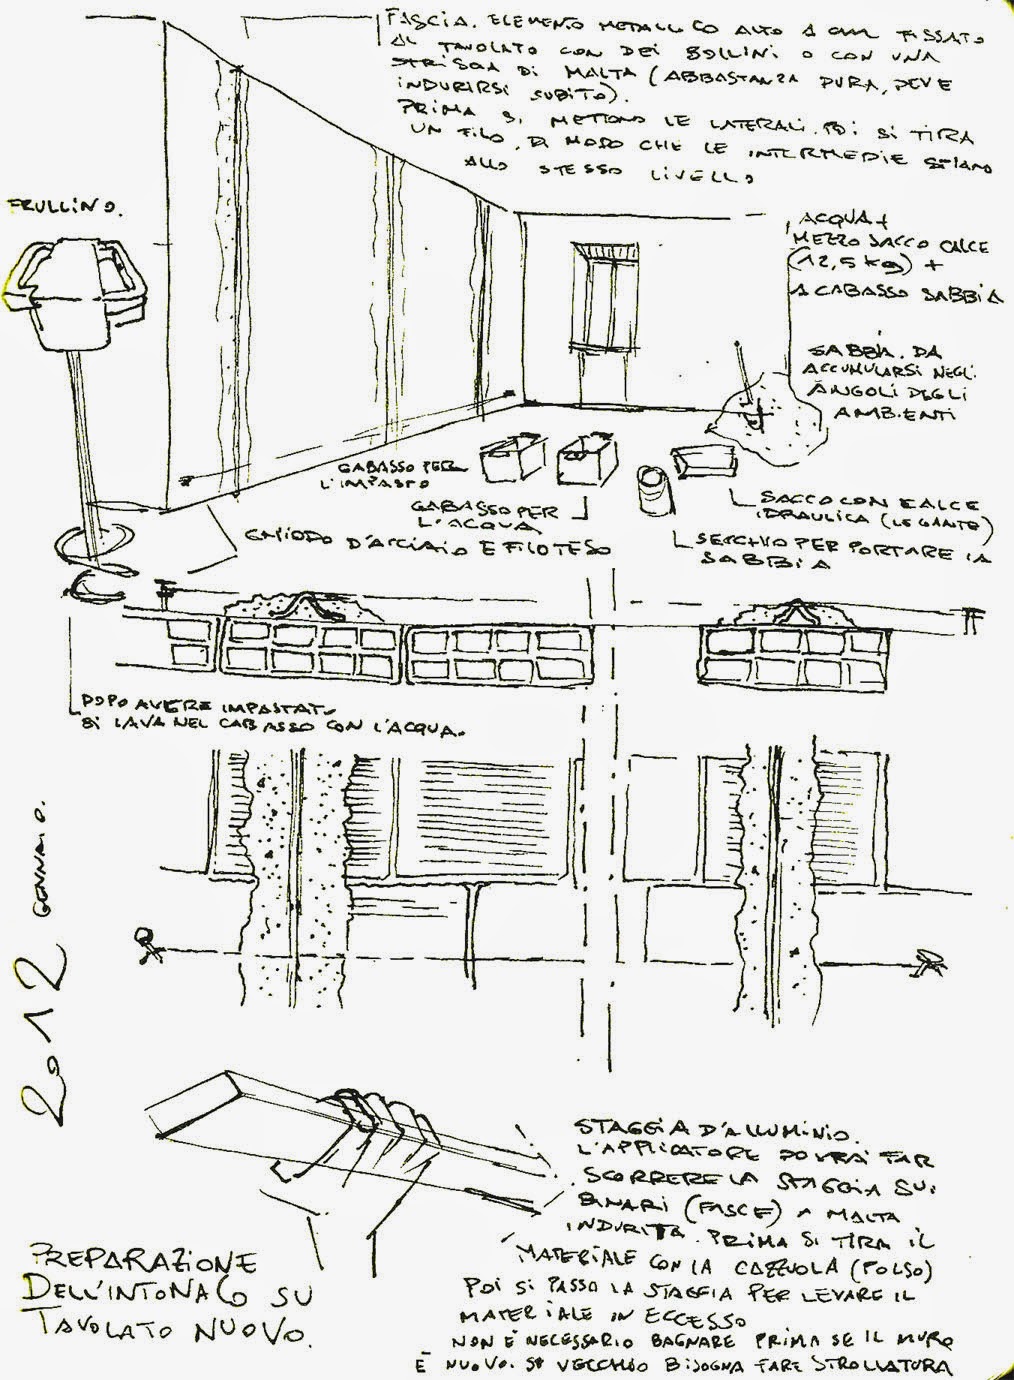 FASCIA. ELEMENTO METALLICO ALTO 1 CM FISSATO
AL TAVOLATO CON DEI BOLLINI O CON UNA
STRISCIA DI MALTA (ABBASTANZA DURA, DEVE
INDURIRSI SUBITO).
PRIMA SI METTONO LE LATERALI. POI SI TIRA
UN FILO, DI MODO CHE LE INTERMEDIE STIANO
ALLO STESSO LIVELLO
FRULLINO.
ACQUA +
MEZZO SACCO CALCE
(12,5 kg) +
1 CABASSO SABBIA
SABBIA. DA
ACCUMULARSI NEGLI
ANGOLI DEGLI
AMBIENTI
GABASSO PER
L'IMPASTO
GABASSO PER
L'ACQUA
SACCO CON CALCE
IDRAULICA (LEGANTE)
CHIODO D'ACCIAIO E FILO TESO
SECCHIO PER PORTARE LA
SABBIA
DOPO AVERE IMPASTATO
SI LAVA NEL CABASSO CON L'ACQUA.
2012 GENNAIO.
STAGGIA D'ALLUMINIO.
L'APPLICATORE DOVRÀ FAR
SCORRERE LA STAGGIA SUI
BINARI (FASCE) A MALTA
INDURITA. PRIMA SI TIRA IL
MATERIALE CON LA CAZZUOLA (POLSO)
POI SI PASSA LA STAGGIA PER LEVARE IL
MATERIALE IN ECCESSO
NON È NECESSARIO BAGNARE PRIMA SE IL MURO
È NUOVO. SE VECCHIO BISOGNA FARE STROLLATURA
PREPARAZIONE
DELL'INTONACO SU
TAVOLATO NUOVO.